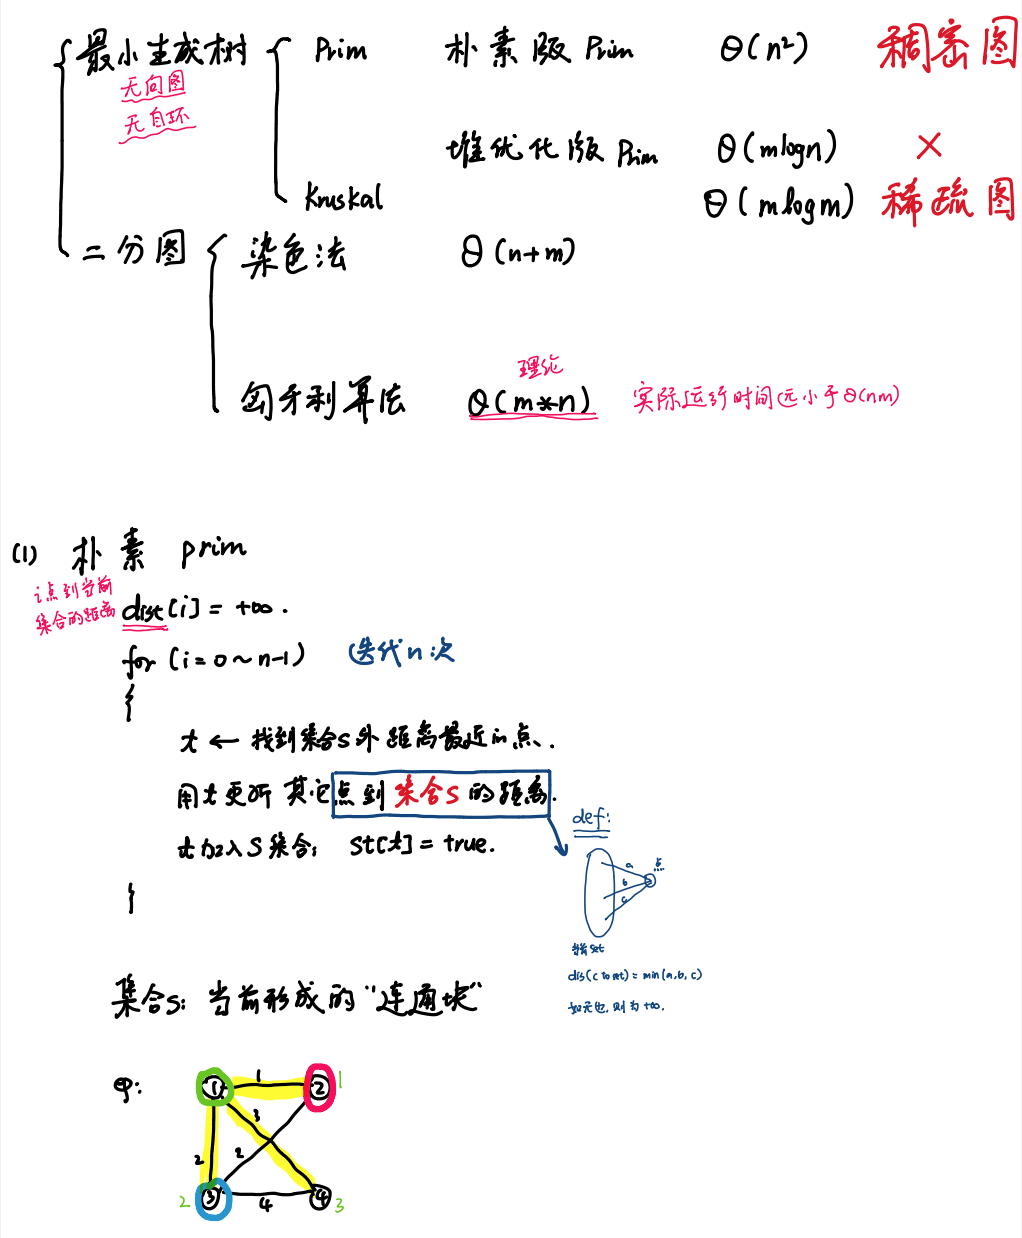 最小生成树 Prim 朴素版 Prim Θ(n²) 稠密图
无向图
无自环
堆优化版 Prim Θ(mlogn) ×
Kruskal Θ(mlogm) 稀疏图
二分图 染色法 Θ(n+m)
理论
匈牙利算法 Θ(m*n) 实际运行时间远小于Θ(nm)
(1) 朴素 prim
i点到当前
集合的距离
dist[i] = +∞.
for (i=0~n-1) 迭代n次
{
t ← 找到集合S外距离最近的点.
用t更新其它点到集合S的距离.
t加入S集合; St[t] = true.
}
def:
a 点
b
c
当前set
dis(c to set) = min(a,b,c)
如无边,则为+∞.
集合S: 当前形成的“连通块”
1 1 2 1
3
2 2
2 3 4 4 3